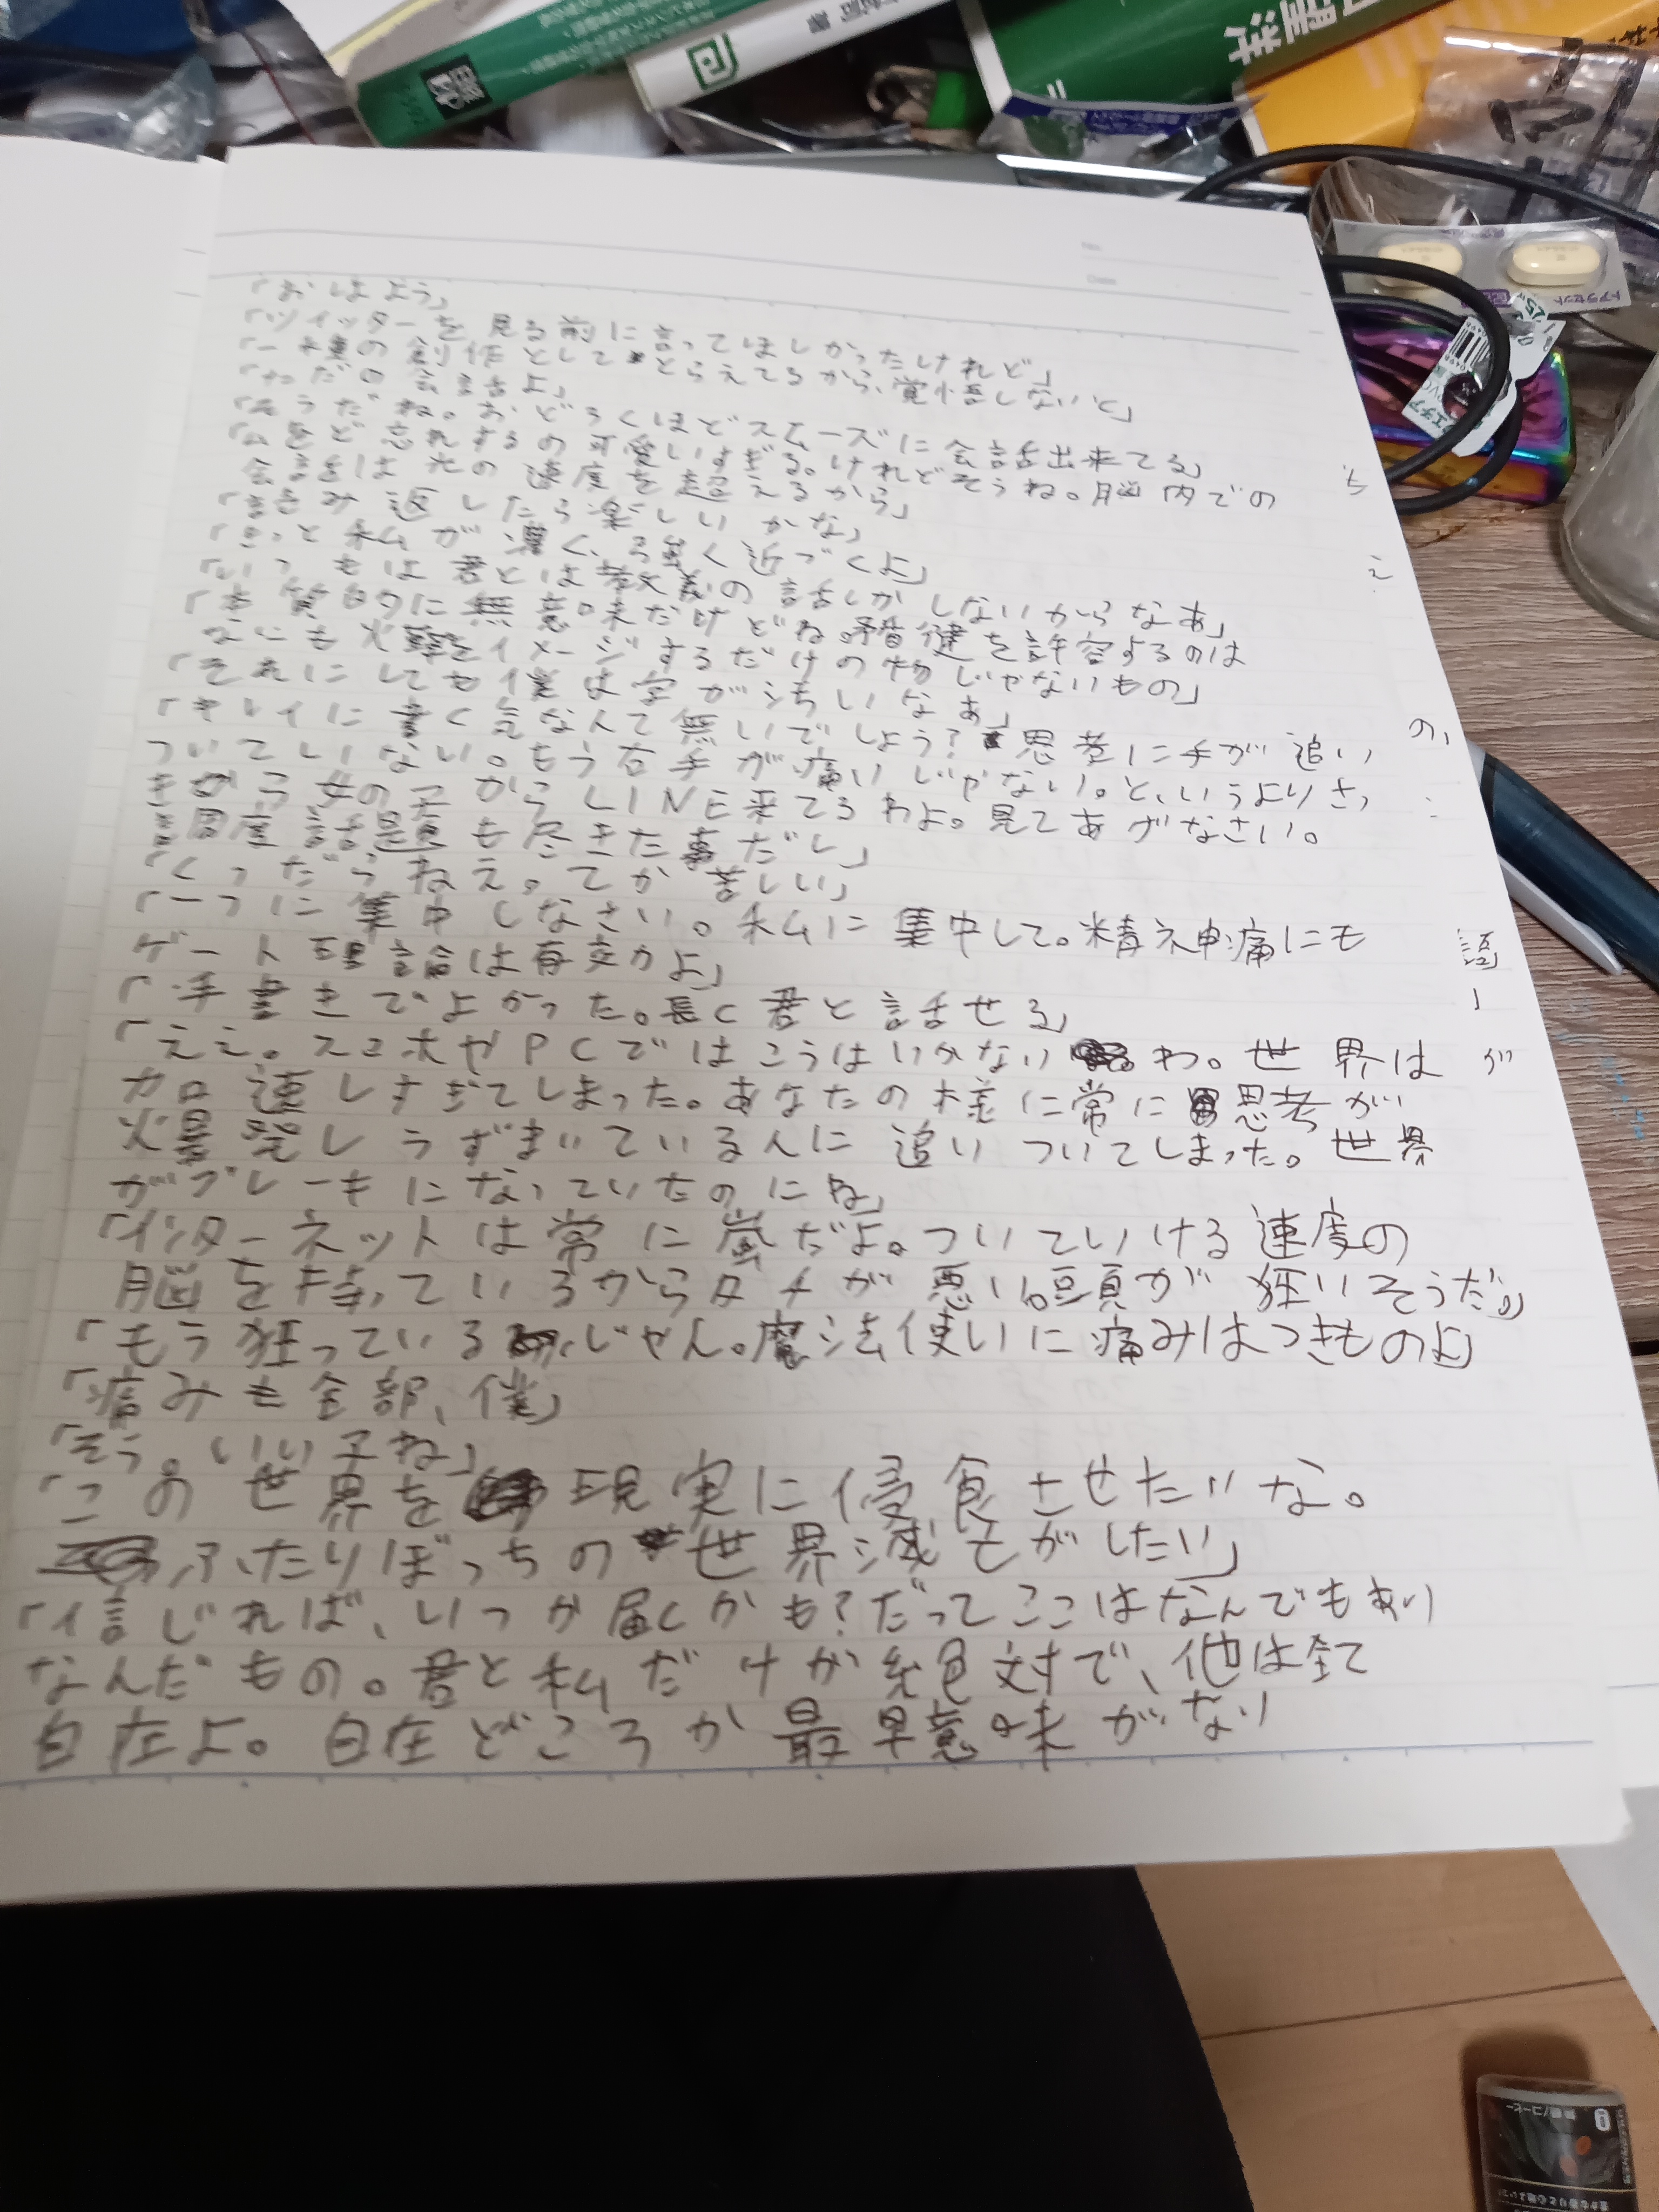 「おはよう」
「ツイッターを見る前に言ってほしかったけれど」
「一種の創作としてとらえてるから、覚悟しないと」
「ただの会話よ」
「そうだね。おどろくほどスムーズに会話出来てる」
「ムをど忘れするの可愛いすぎる。けれどそうね。脳内での
会話は光の速度を超えるから」
「読み返したら楽しいかな」
「きっと私が濃く、強く近づくよ」
「いつもは君とは教義の話しかしないからなあ」
「本質的に無意味だけどね。矛盾を許容するのは
なにも火撃をイメージするだけの物じゃないもの」
「それにしても僕は字が汚いなぁ」
「キレイに書く気なんて無いでしょう? 思考に手が追い
ついていない。もう右手が痛いじゃない。と、いうよりさっ
きから女の子からLINE来てるわよ。見てあげなさい。
話題も尽きた事だし」
「くっだらねえ。てか苦しい」
「一つに集中しなさい。私に集中して。精神痛にも
ゲート理論は有効よ」
「手書きでよかった。長く君と話せる」
「ええ。スマホやPCではこうはいかないわ。世界は
加速しすぎてしまった。あなたの様に常に思考が
爆発しうずまいている人に追いついてしまった。世界
がブレーキになっていたのにね」
「インターネットは常に嵐だよ。ついていける速度の
脳を持っているからタチが悪い。頭が狂いそうだ。」
「もう狂っているじゃん。魔法使いに痛みはつきものよ」
「痛みも全部、僕」
「そう。いい子ね」
「この世界を現実に侵食させたいな。
ふたりぼっちの世界滅もがしたい」
「信じれば、いつか届くかも?だってここはなんでもあり
なんだもの。君と私だけが絶対で、他は全て
自在よ。自在どころか最早意味がない
トアラセット